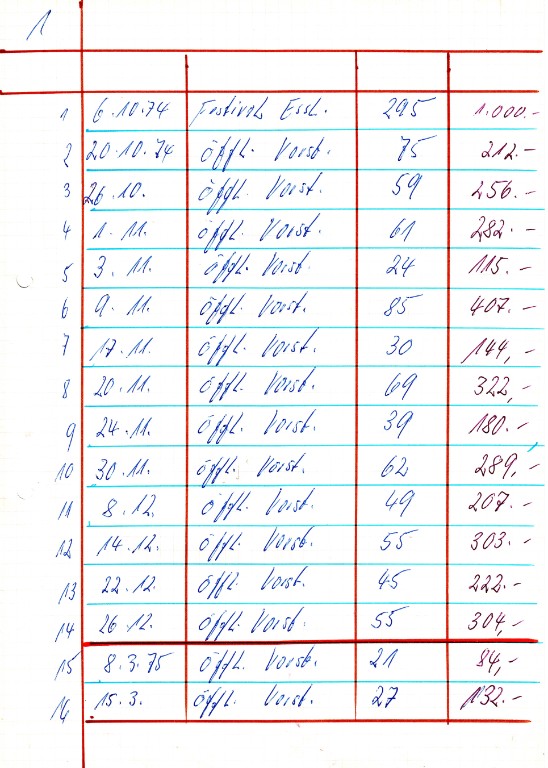 1
1 6.10.74 Festival Essl. 295 1.000.-
2 20.10.74 öffl. Vorst. 75 212.-
3 26.10. öffl. Vorst. 59 256.-
4 1.11. öffl. Vorst. 61 282.-
5 3.11. öffl. Vorst. 24 115.-
6 9.11. öffl. Vorst. 85 407.-
7 17.11. öffl. Vorst. 30 144,-
8 20.11. öffl. Vorst. 69 322,-
9 24.11. öffl. Vorst. 39 180.-
10 30.11. öffl. Vorst. 62 289,-
11 8.12. öffl. Vorst. 49 207.-
12 14.12. öffl. Vorst. 55 303.-
13 22.12. öffl. Vorst. 45 222.-
14 26.12. öffl. Vorst. 55 304,-
15 8.3.75 öffl. Vorst. 21 84,-
16 15.3. öffl. Vorst. 27 132.-